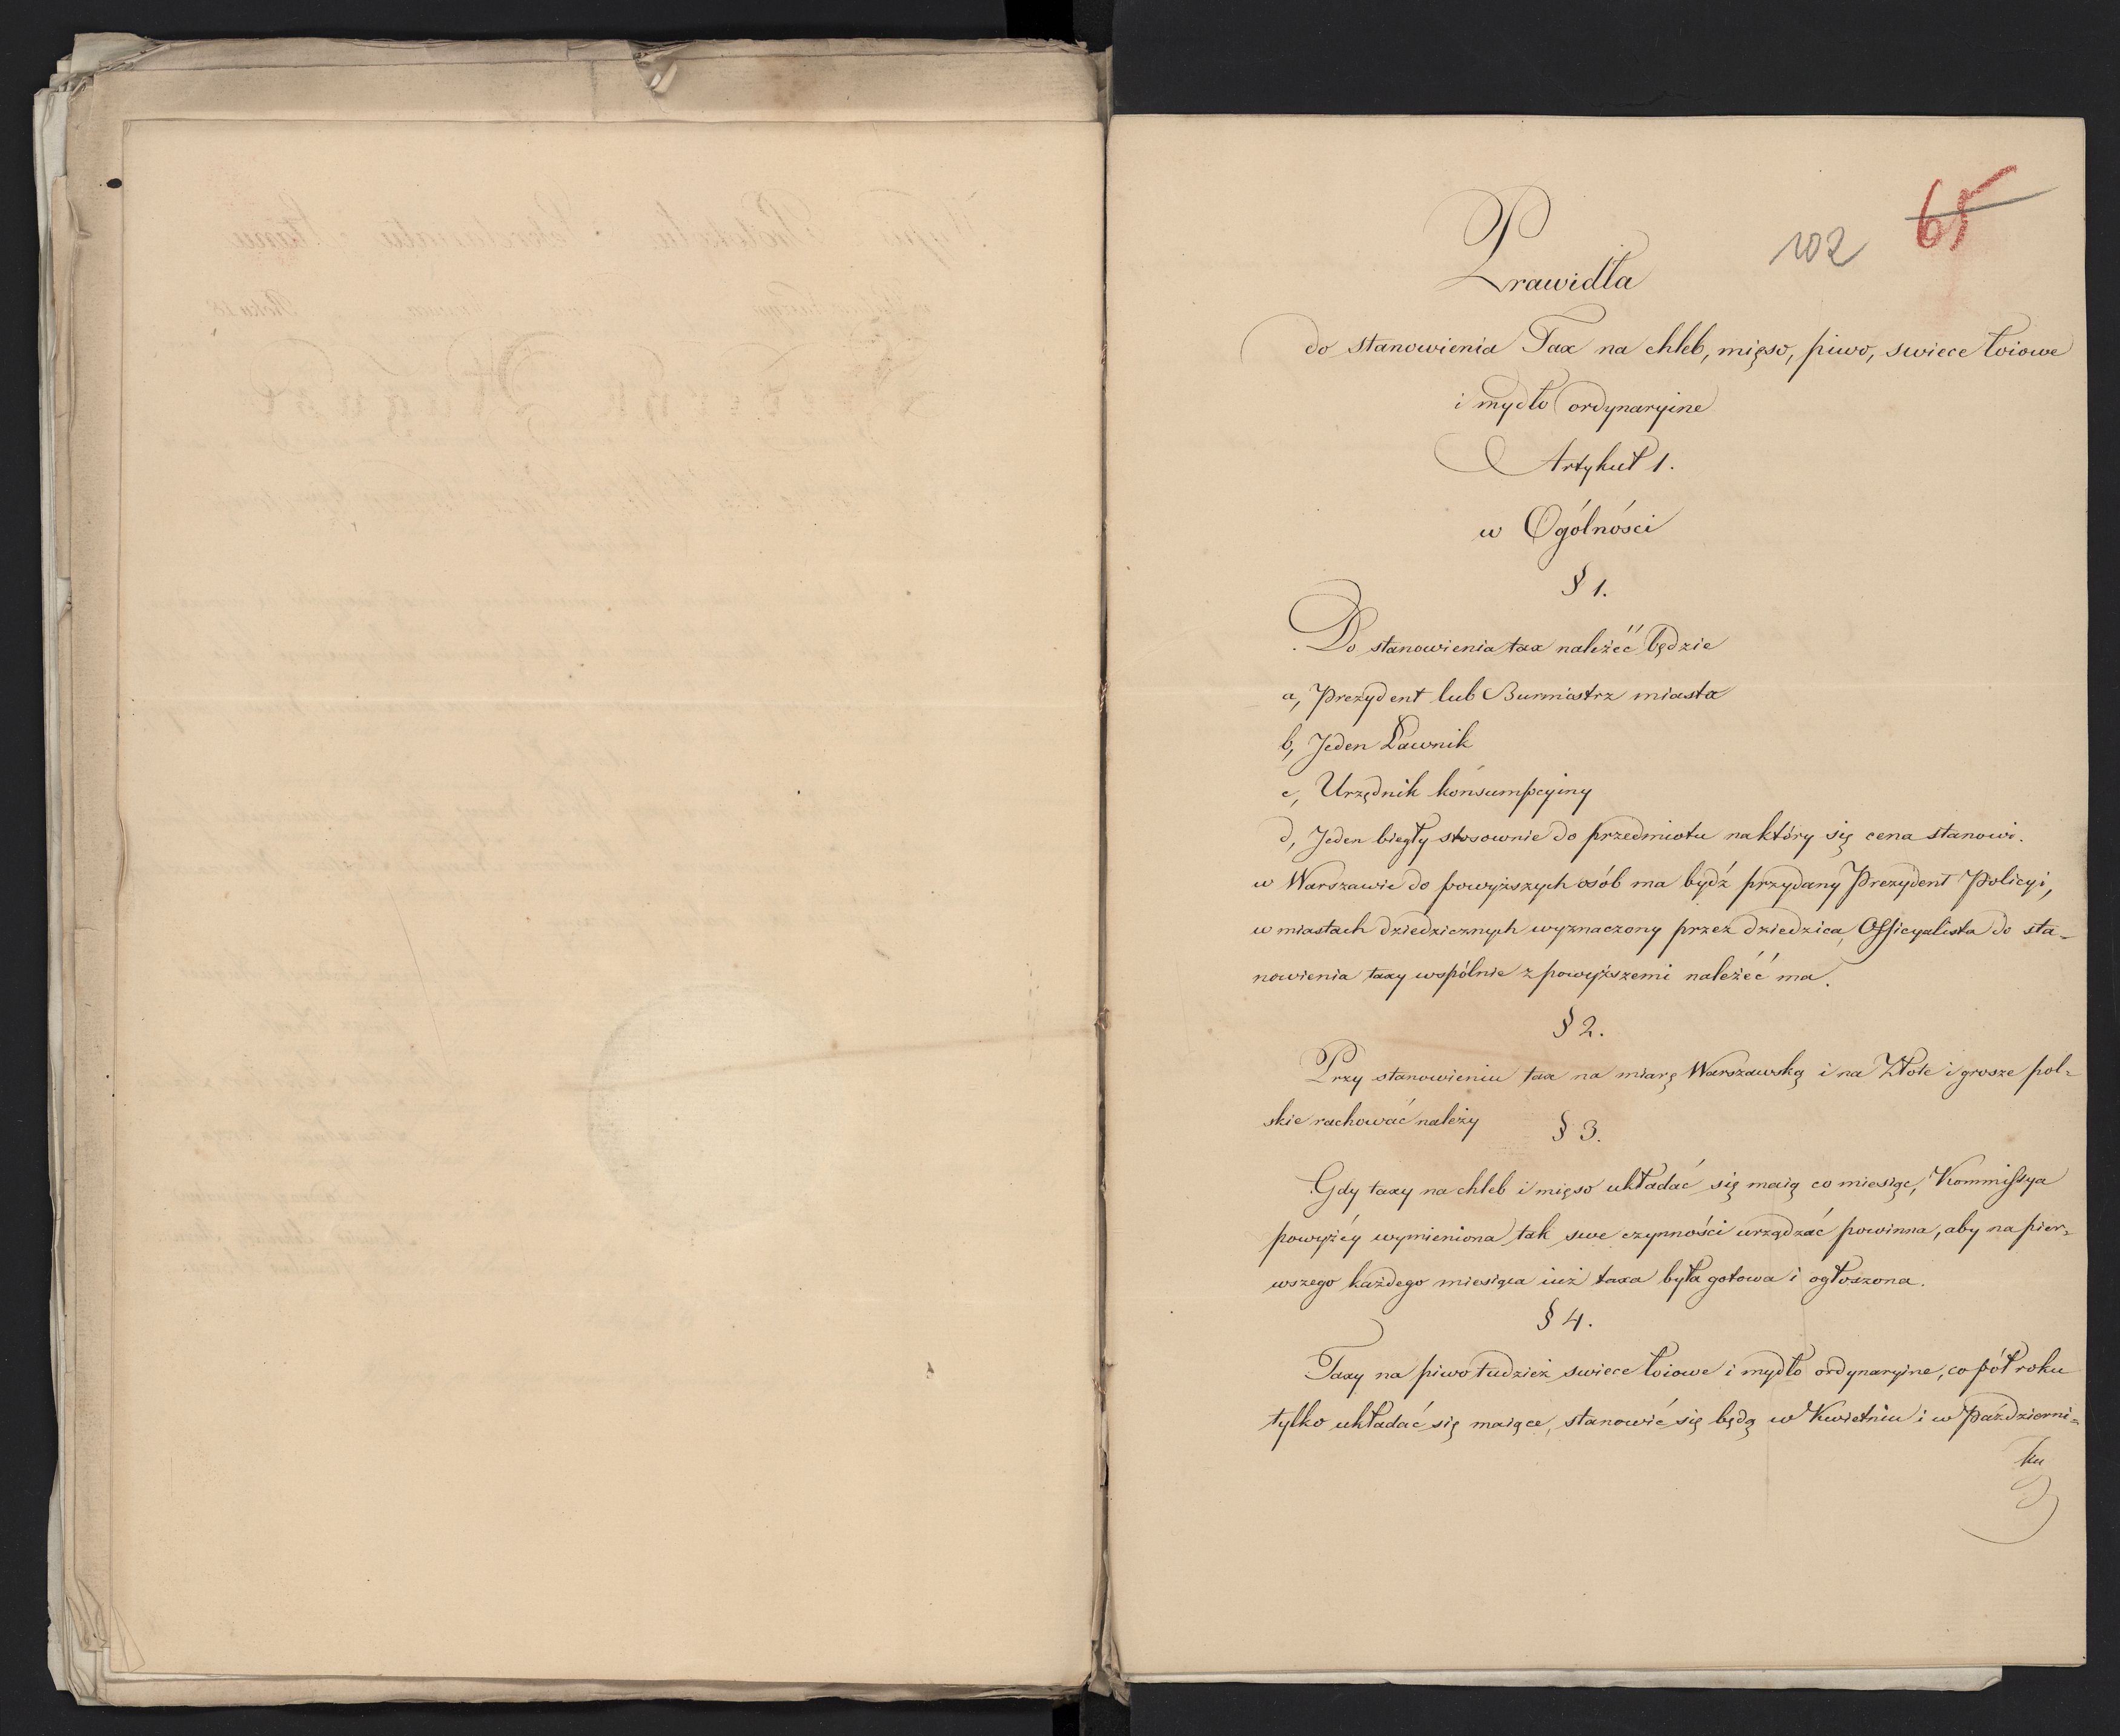 65
102
Prawidła
do stanowienia Tax na chleb, mięso, piwo, swiece łoiowe
i mydło ordynaryine
Artykuł 1.
w Ogólności
§ 1.
Do stanowienia tax należéć będzie
a, Prezydent lub Burmistrz miasta
b, Jeden Ławnik
c, Urzędnik konsumpcyiny
d, Jeden biegły stosownie do przedmiotu na który się cena stanowi.
w Warszawie do powyższych osób ma bydź przydany Prezydent Policyi,
w miastach dziedzicznych wyznaczony przez dziedzica Officyalista do sta=
nowienia taxy wspólnie z powyższemi należéć ma.
§ 2.
Przy stanowieniu tax na miarę Warszawską i na Złote i grosze pol=
skie rachować należy
§ 3.
Gdy taxy na chleb i mięso układać się maią co miesiąc, Kommissya
powyżéy wymieniona tak swe czynności urządzać powinna, aby na pier=
wszego każdego miesiąca iuż taxa była gotowa i ogłoszona.
§ 4.
Taxy na piwo tudzież swiece łoiowe i mydło ordynaryine, co pół roku
tylko układać się maiące, stanowić się będą w Kwietniu i w Październi=
ku